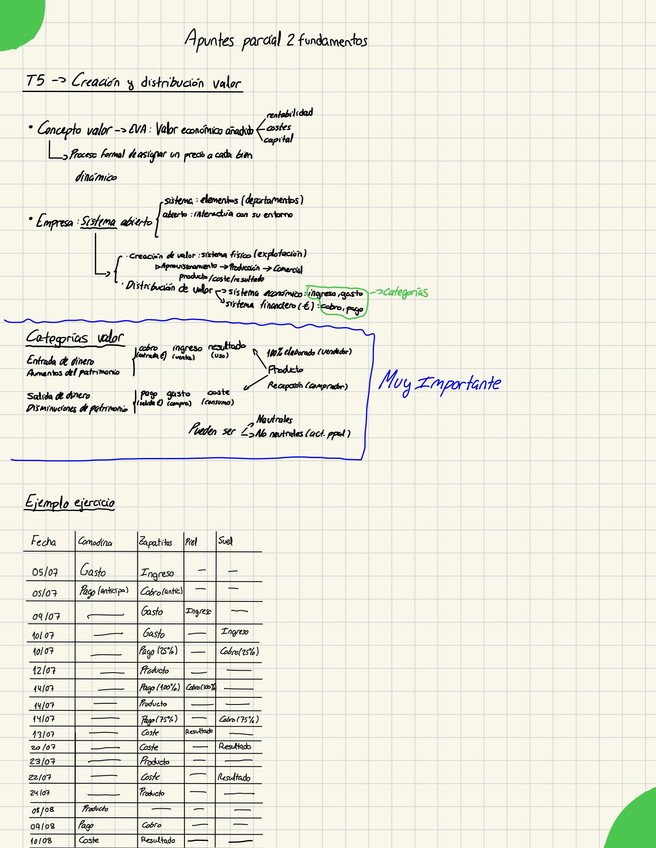 Apuntes parcial 2 fundamentos
T5 -> Creación y distribución valor
• Concepto valor -> EVA: Valor económico añadido
rentabilidad
costes
capital
Proceso formal de asignar un precio a cada bien
dinámico
• Empresa: Sistema abierto
sistema: elementos (departamentos)
abierto: interactúa con su entorno
· Creación de valor: sistema físico (explotación)
Aprovisionamiento -> Producción -> Comercial
producto/coste/resultado
· Distribución de valor -> sistema económico: ingreso, gasto -> Categorías
sistema financiero (€): cobro, pago
Categorías valor
cobro ingreso resultado
(entrada €) (venta) (uso)
Entrada de dinero
Aumentos del patrimonio
100% elaborado (vendedor)
Producto
Recepción (comprador)
Salida de dinero
Disminuciones de patrimonio
pago gasto coste
(salida €) (compra) (consumo)
Pueden ser
Neutrales
No neutrales (act. ppal)
Muy Importante
Ejemplo ejercicio
Fecha Comodina Zapatitos Piel Suel
05/07 Gasto Ingreso — —
05/07 Pago (anticipo) Cobro (antic) — —
09/07 — Gasto Ingreso —
10/07 — Gasto — Ingreso
10/07 — Pago (25%) — Cobro (25%)
12/07 — Producto — —
14/07 — Pago (100%) Cobro (100% —
14/07 — Producto — —
14/07 — Pago (75%) — Cobro (75%)
13/07 — Coste Resultado —
20/07 — Coste — Resultado
23/07 — Producto — —
22/07 — Coste — Resultado
24/07 — Producto — —
08/08 Producto — — —
09/08 Pago Cobro — —
10/08 Coste Resultado — —